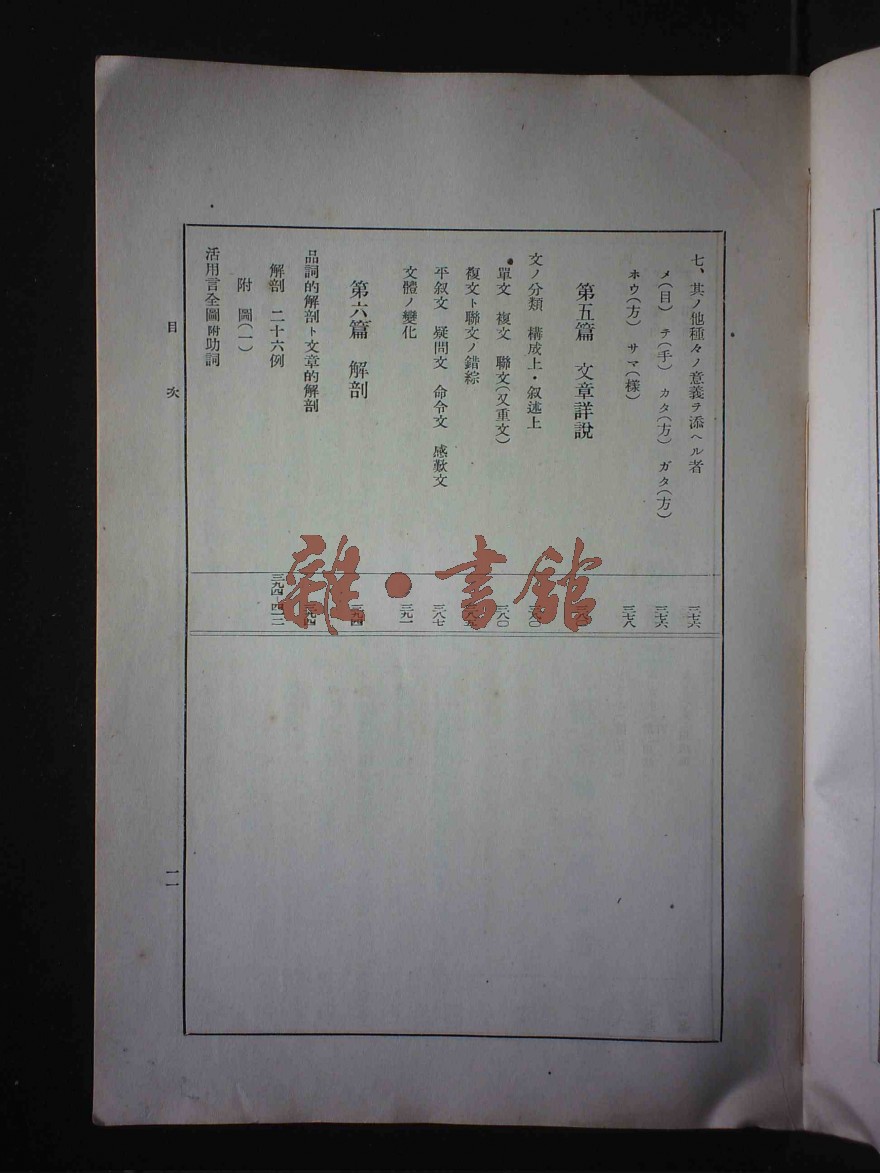 七、其ノ他種々ノ意義ヲ添ヘル者 三七六
メ(目) テ(手) カタ(方) ガタ(方) 三七六
ホウ(方) サマ(樣) 三七八
第五篇 文章詳説
文ノ分類 構成上・叙述上 三八〇
單文 複文 聯文(又重文) 三八〇
複文ト聯文ノ錯綜
平叙文 疑問文 命令文 感歎文 三八七
文體ノ變化 三九一
第六篇 解剖 三九四
品詞的解剖ト文章的解剖 三九四
解剖 二十六例
附 圖(一)
活用言全圖附助詞
目 次
一一
雜・書館